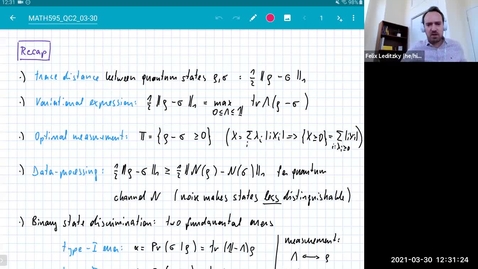 12:31
MATH595_QC2_03-30
Recap
·) trace distance between quantum states ρ,σ : ½ ‖ρ − σ‖₁
·) Variational expression: ½ ‖ρ − σ‖₁ = max tr Λ(ρ − σ)
0≤Λ≤𝟙
·) Optimal measurement: Π = {ρ − σ ≥ 0} (X = Σᵢ λᵢ |i⟩⟨i| ⟹ {X ≥ 0} = Σ |i⟩⟨i|)
i:λᵢ≥0
·) Data-processing: ½ ‖ρ − σ‖₁ ≥ ½ ‖N(ρ) − N(σ)‖₁ for quantum
channel N (noise makes states less distinguishable)
·) Binary state discrimination: two fundamental errors
type-I error: α = Pr(σ|ρ) = tr(𝟙−Λ)ρ
measurement:
Λ ⟷ ρ
Felix Leditzky (he/hi...
2021-03-30 12:31:24